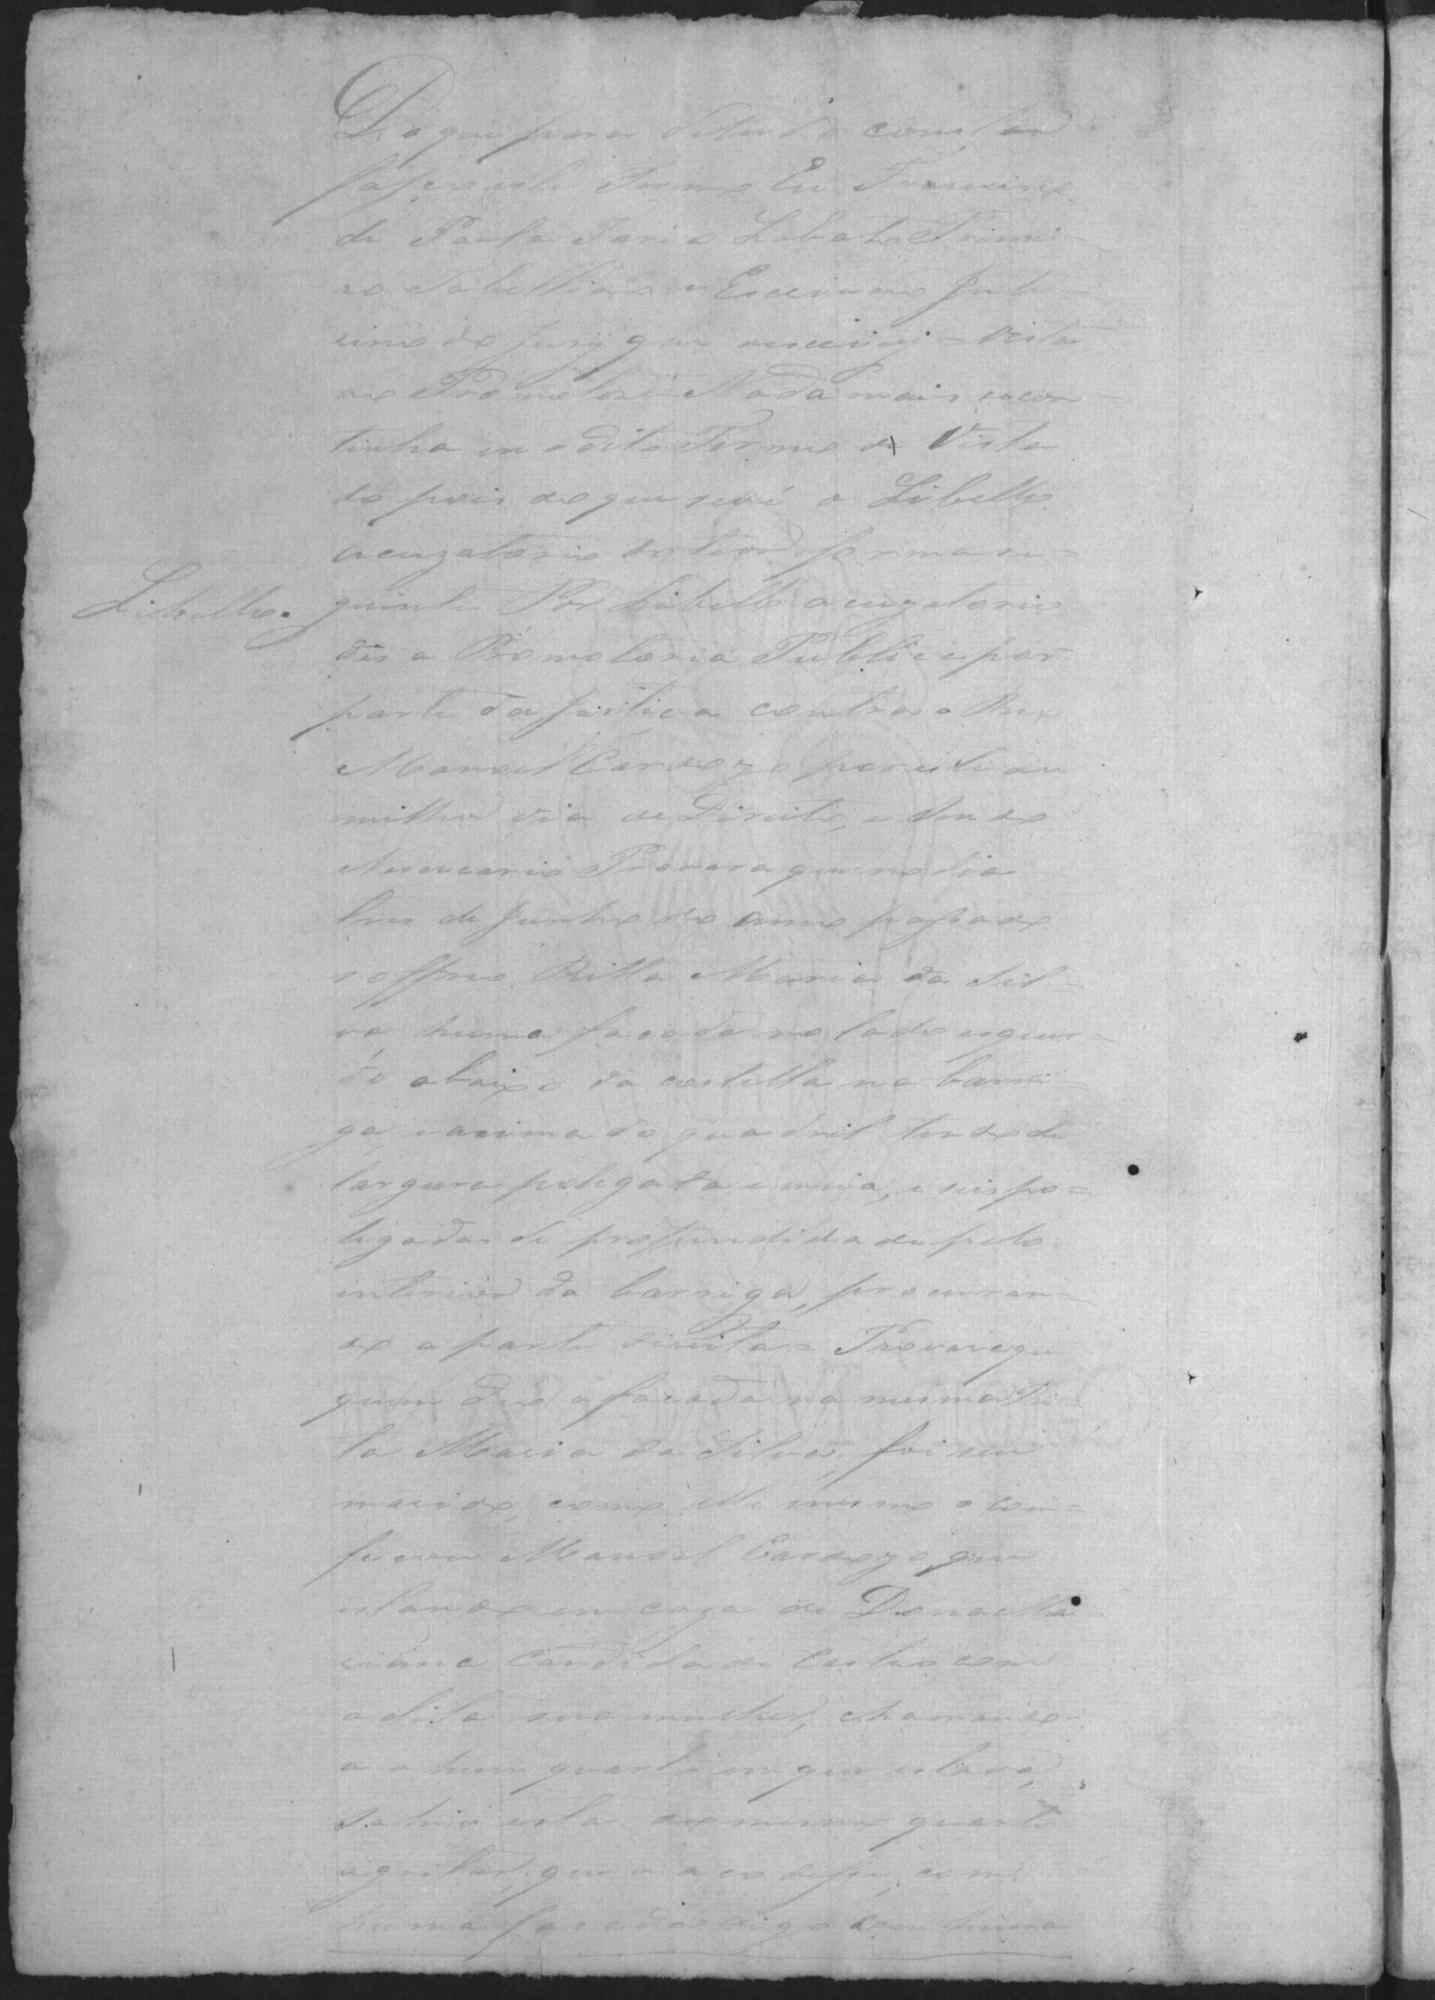 Do que para de tudo constar
faço este Termo Eu Francisco
de Paula Faria Lobato Primei-
ro Tabellião e Escrivão Inte-
rino do Jury que escrevi = Vista
ao Promotor = Nada mais se con-
tinha em o dito Termo de Vista
do pois do que se vê o Libello
acuzatorio do theor e forma se-
Libello.
guinte Por Libello acuzatorio
diz a Promotoria Publica por
parte da Justiça contra o Reo
Manoel Cardozo por esta ou
milhor via de Direito, e sendo
Necessario Provara que no dia
tres de Junho do anno passado
soffreo Ritta Maria da Sil-
va huma facada no lado esquer-
do abaixo da costella na barri-
ga, e acima do quadril tendo de
largura polegada e meia, e seis po=
legadas de profundidade pelo
interior da barriga, procuran-
do a parte direita = Provara que
quem deo a facada na mesma Ri-
ta Maria da Silva, foi seu
marido, como elle mesmo o con=
fessou Manoel Cardozo, que
estando em caza de Dona
Candida de Castro com
a dita sua mulher, chamando-
a a hum quarto em que estava,
sahio esta do mesmo quarto
a gritar, que a acodisse, com
huma facada digo com huma